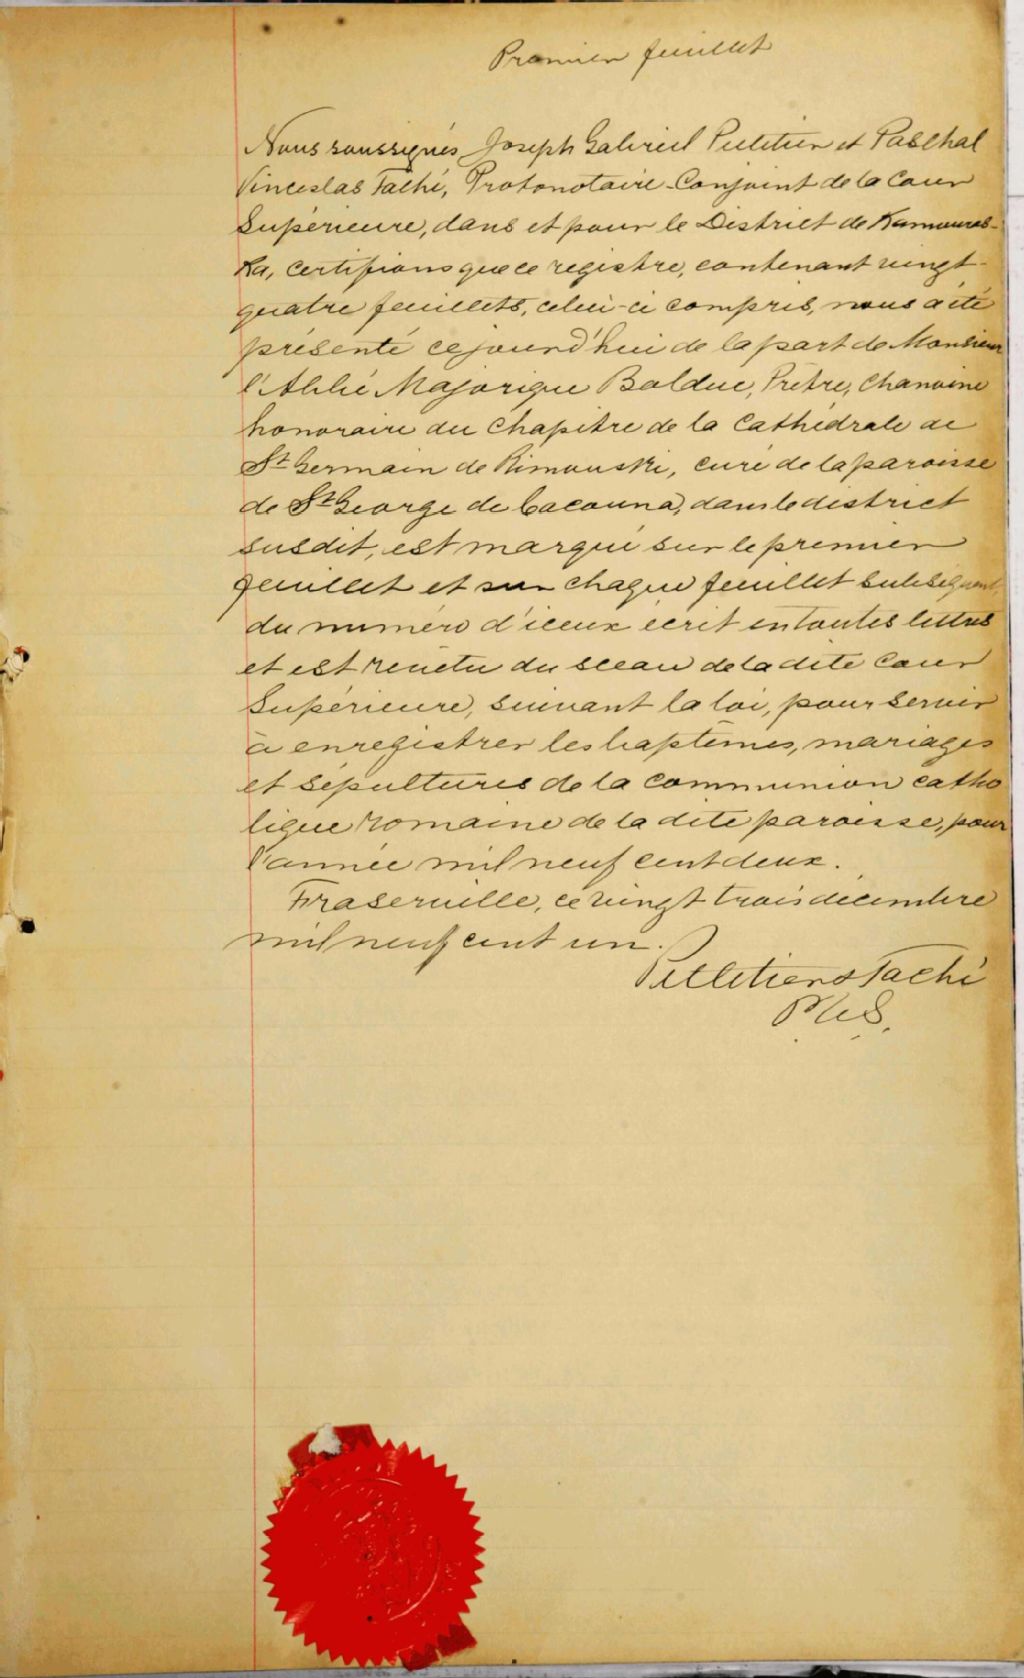 Premier feuillet
Nous soussignés, Joseph Gabriel Pelletier et Paschal
Vinceslas Taché, Protonotaire-Conjoint de la Cour
Supérieure, dans et pour le District de Kamouras-
ka, certifions que ce registre, contenant vingt-
quatre feuillets, celui-ci compris, nous a été
présenté ce jourd'hui de la part de Monsieur
l'Abbé Majorique Bolduc, Prêtre, Chanoine
honoraire du Chapitre de la Cathédrale de
St Germain de Rimouski, curé de la paroisse
de St George de Cacouna, dans le district
susdit, est marqué sur le premier
feuillet et sur chaque feuillet subséquent,
du numéro d'iceux écrit en toutes lettres
et est revêtu du sceau de la dite Cour
Supérieure, suivant la loi, pour servir
à enregistrer les baptêmes, mariages
et sépultures de la communion catho
lique romaine de la dite paroisse, pour
l'année mil neuf cent deux.
Fraserville, ce vingt trois décembre
mil neuf cent un.
Pelletier & Taché
P.C.S.